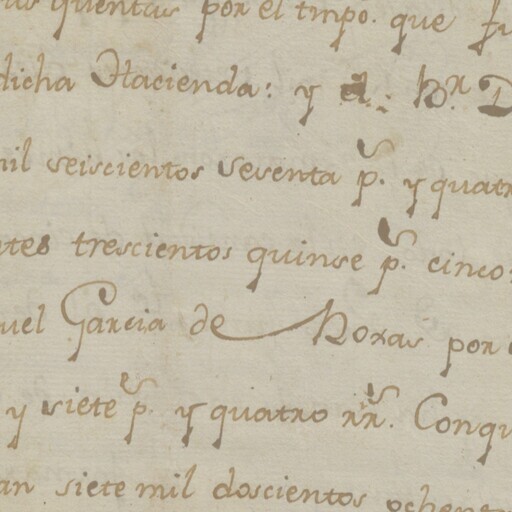 quentas por el tmpo. que
dicha Hacienda: y el Br. D
mil seiscientos sesenta ps. y quatr
ntes trescientos quinse ps. cinco
uel Garcia de Roxas por
y siete ps. y quatro rrs. Conqu
an siete mil doscientos ochen